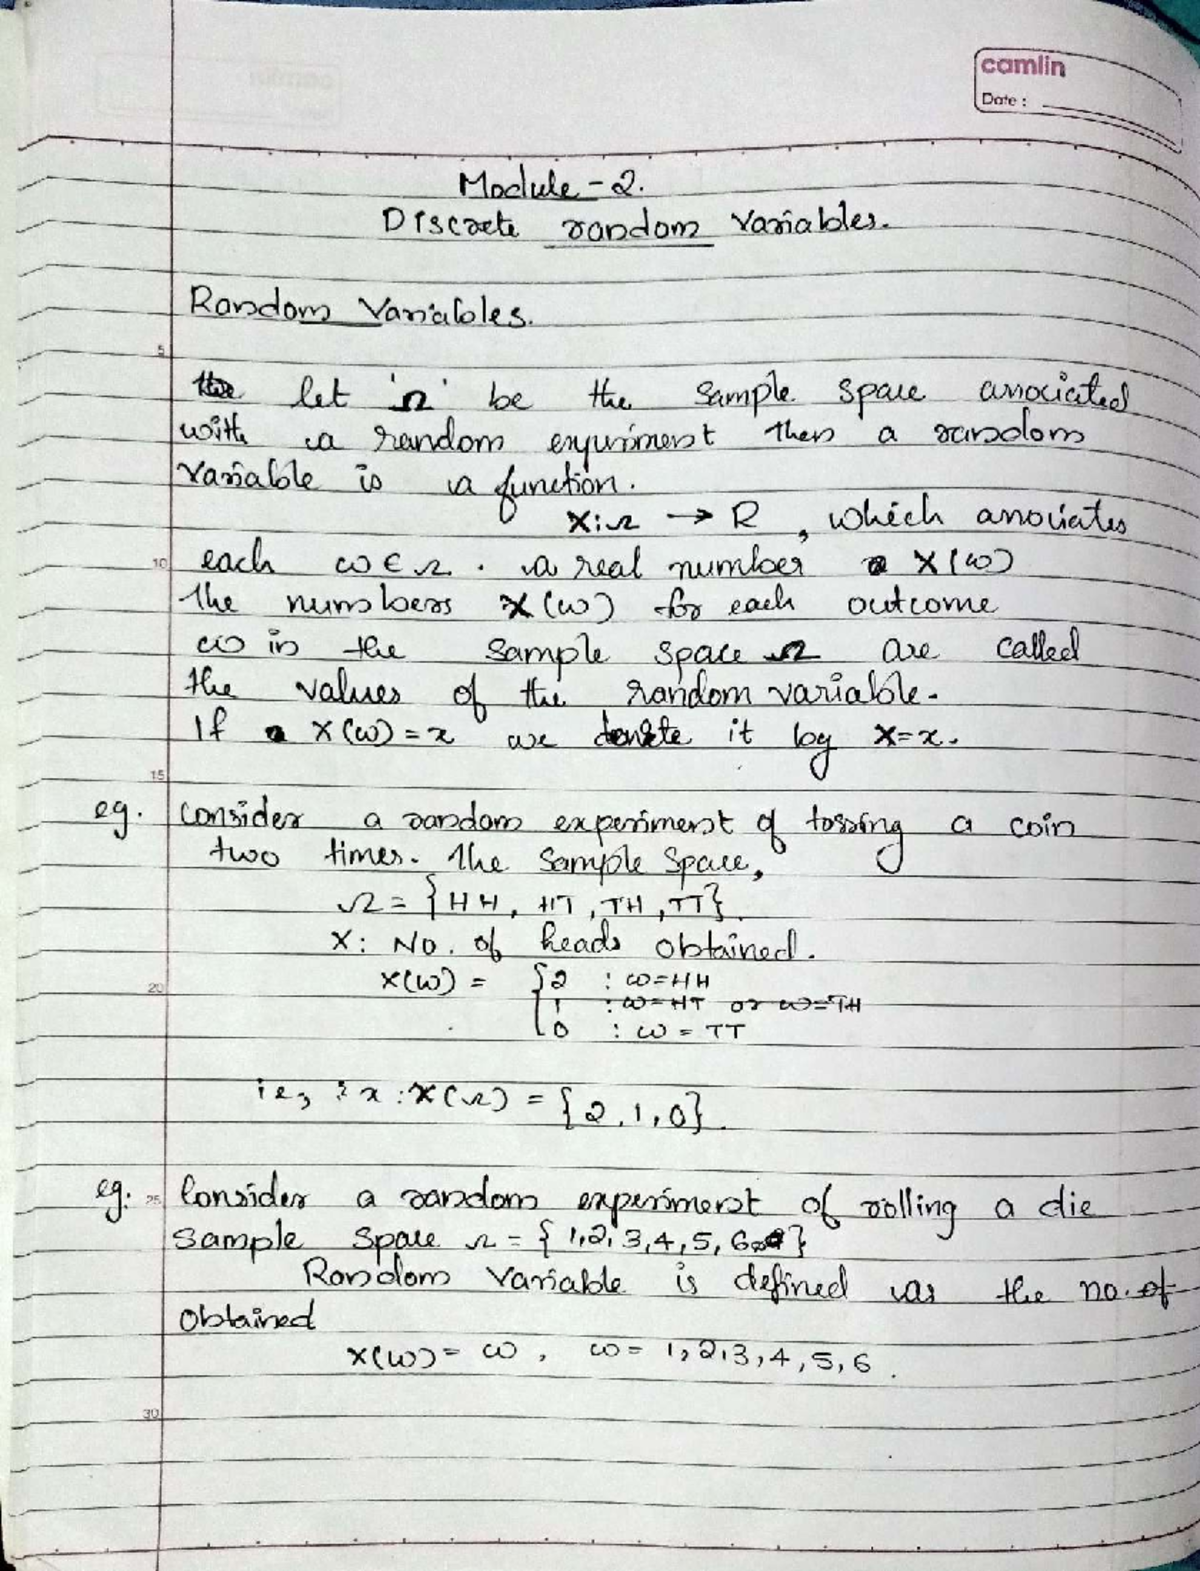 camlin
Date :
Module - 2.
Discrete random Variables.
Random Variables.
5
let 'Ω' be the sample space associated
with a random experiment then a random
variable is a function.
X:Ω → R , which associates
10 each ω ∈ Ω . a real number X(ω)
The numbers X(ω) for each outcome
ω in the sample space Ω are called
the values of the random variable.
If X(ω) = x we denote it by X=x.
15
eg. Consider a random experiment of tossing a coin
two times. The Sample Space,
Ω = {HH, HT, TH, TT}.
X: No. of heads obtained.
20 X(ω) = {2 : ω=HH
1 : ω=HT or ω=TH
0 : ω = TT
ie, x : X(Ω) = {2, 1, 0}.
eg. 25 Consider a random experiment of rolling a die
Sample Space Ω = {1,2,3,4,5,6}
Random Variable is defined as the no. of
obtained
X(ω) = ω, ω = 1,2,3,4,5,6.
30